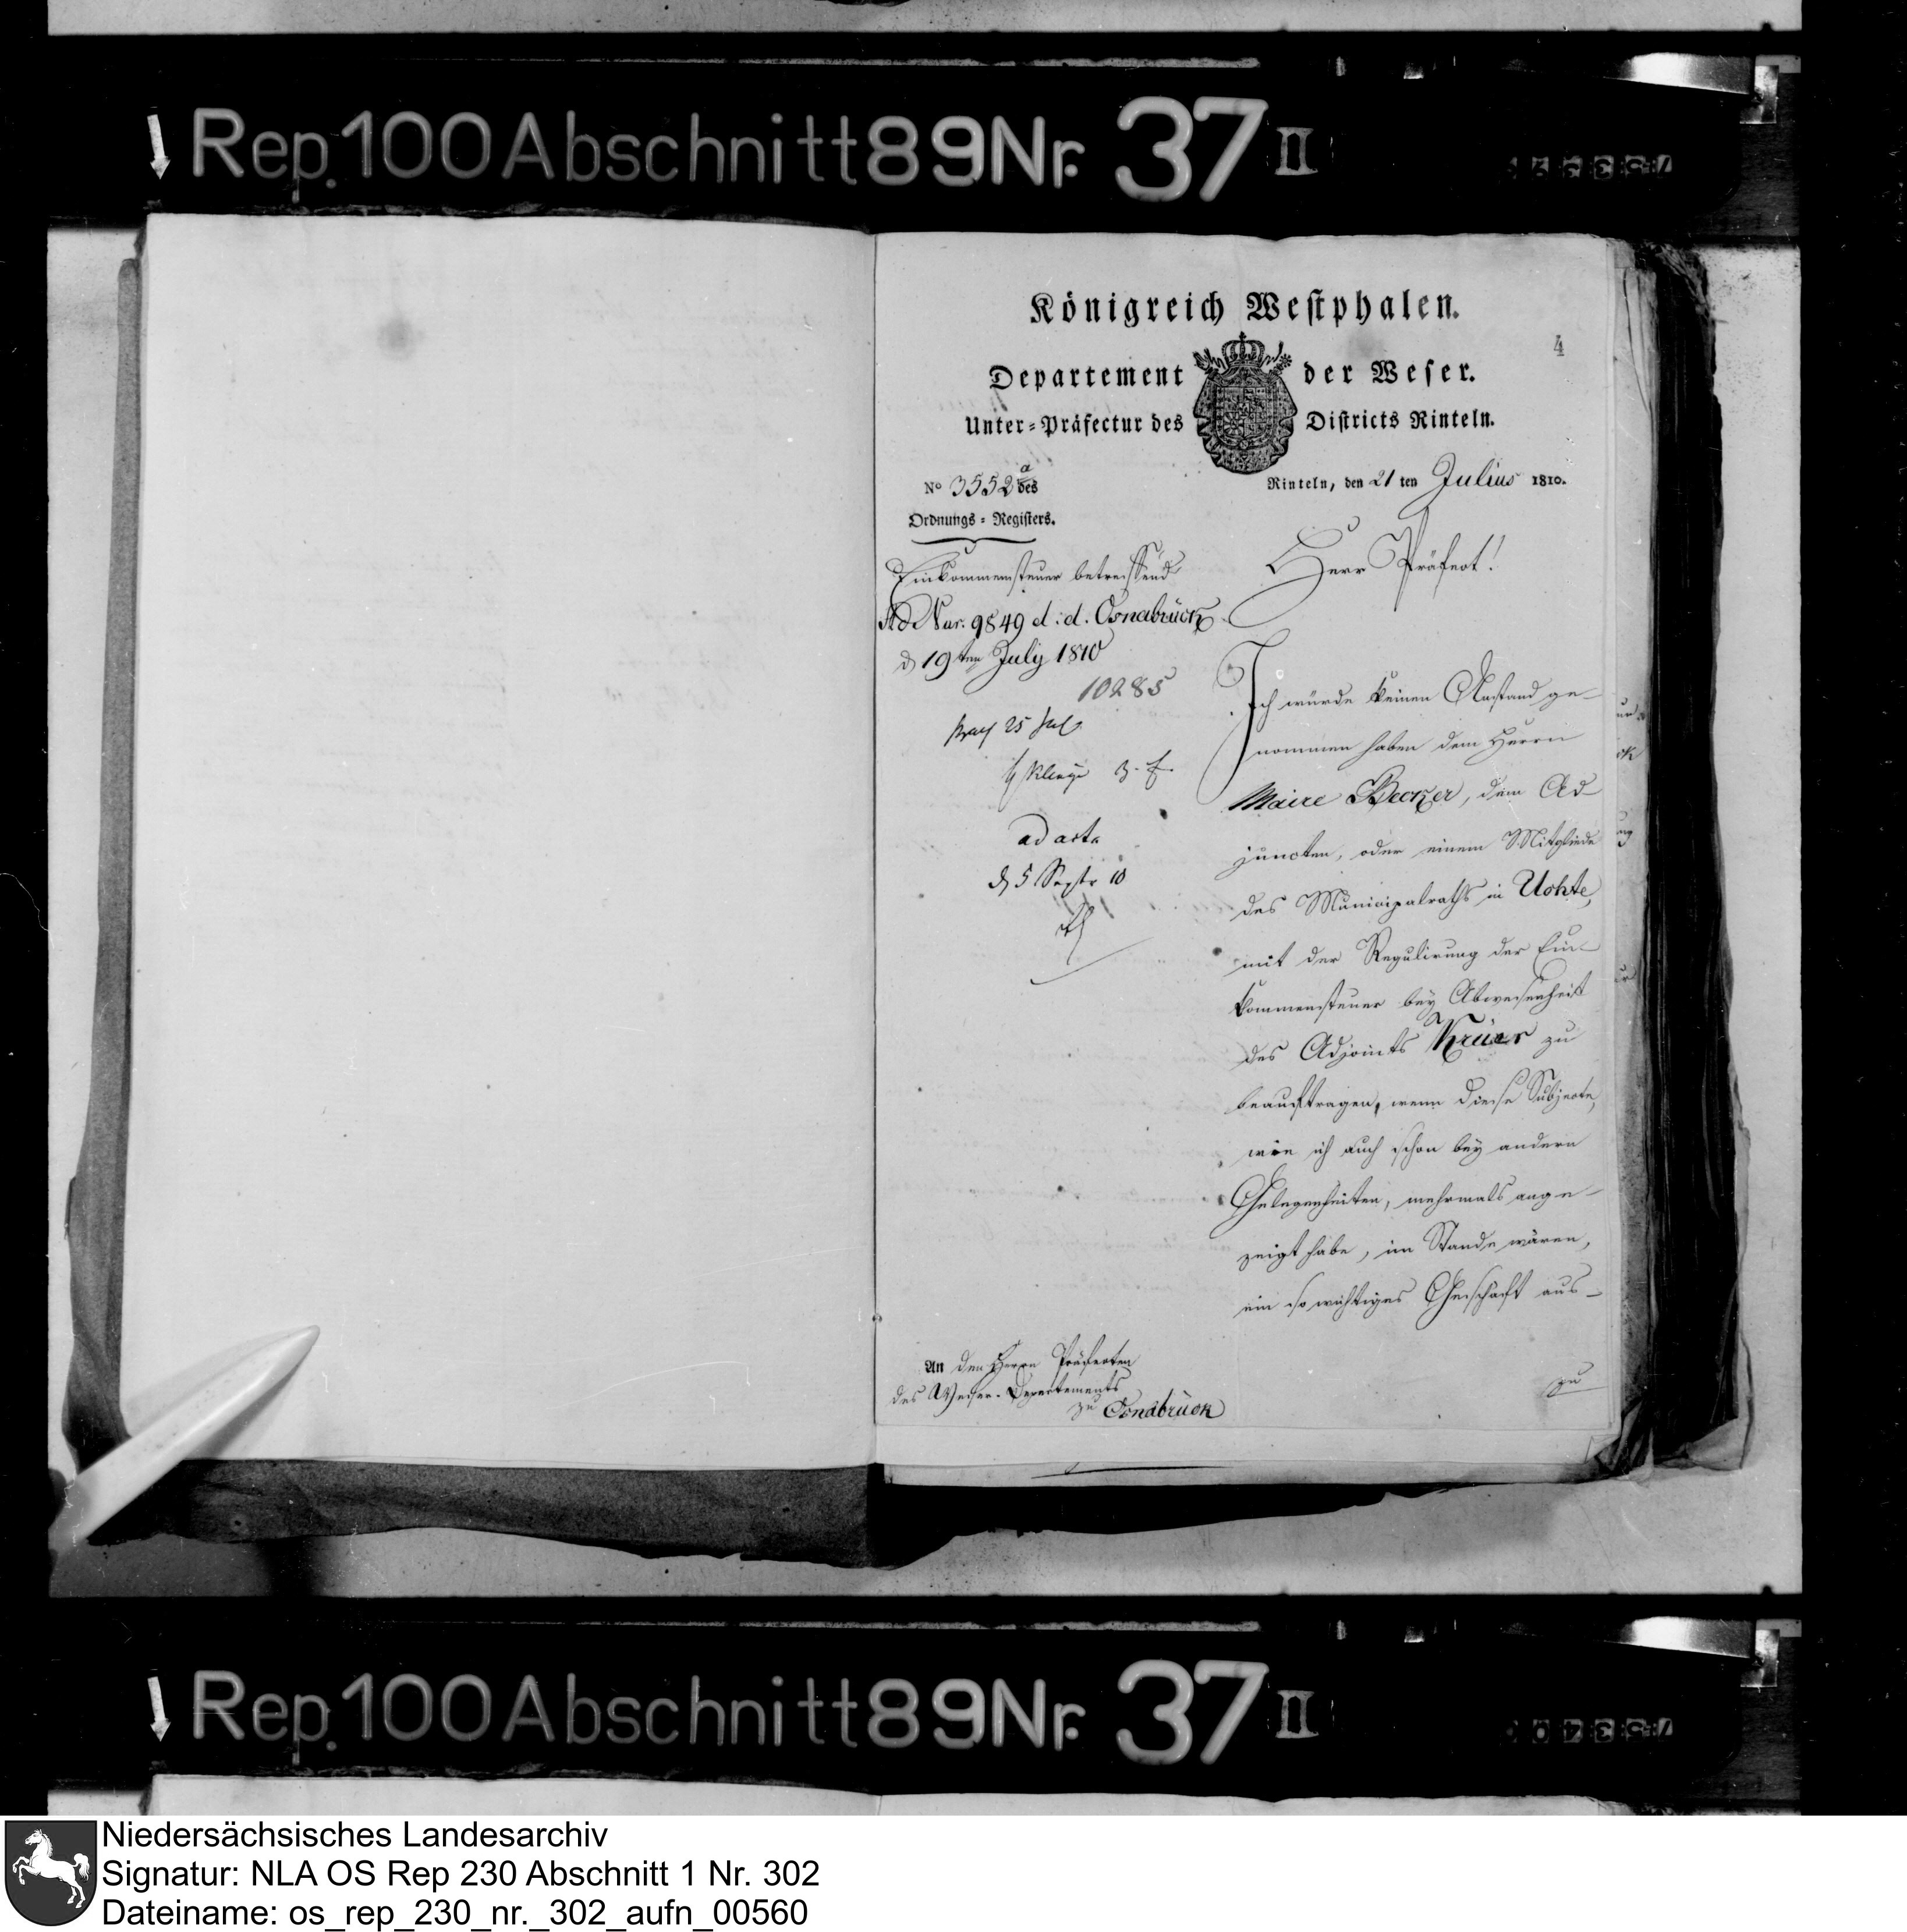 Rep. 100 Abschnitt 89 Nr. 37 II
Königreich Westphalen.
4
Departement der Weser.
Unter-Präfectur des Districts Rinteln.
No 3552 a des
Ordnungs-Registers.
Rinteln, den 21 ten Julius 1810.
Einkommensteuer betreffend
Ad Nur. 9849 d. d. Osnabrück
d 19ten July 1810
10285
25 Jul
ad acta
d 5 Septr 10
Herr Präfect!
Ich würde keinen Anstand ge-
nommen haben dem Herrn
Maire Becker, dem Ad
juncten, oder einem Mitgliede
des Municipalraths in Uchte,
mit der Regulirung der Ein-
kommensteuer bey Abwesenheit
des Adjoints Krüer zu
beauftragen, wenn diese Subjecte,
wie ich auch schon bey andern
Gelegenheiten, mehrmals ange-
zeigt habe, im Stande wären,
ein so wichtiges Geschäft aus-
zu
An den Herrn Präfecten
des Weser-Departements
zu Osnabrück
Rep. 100 Abschnitt 89 Nr. 37 II
Niedersächsisches Landesarchiv
Signatur: NLA OS Rep 230 Abschnitt 1 Nr. 302
Dateiname: os_rep_230_nr._302_aufn_00560